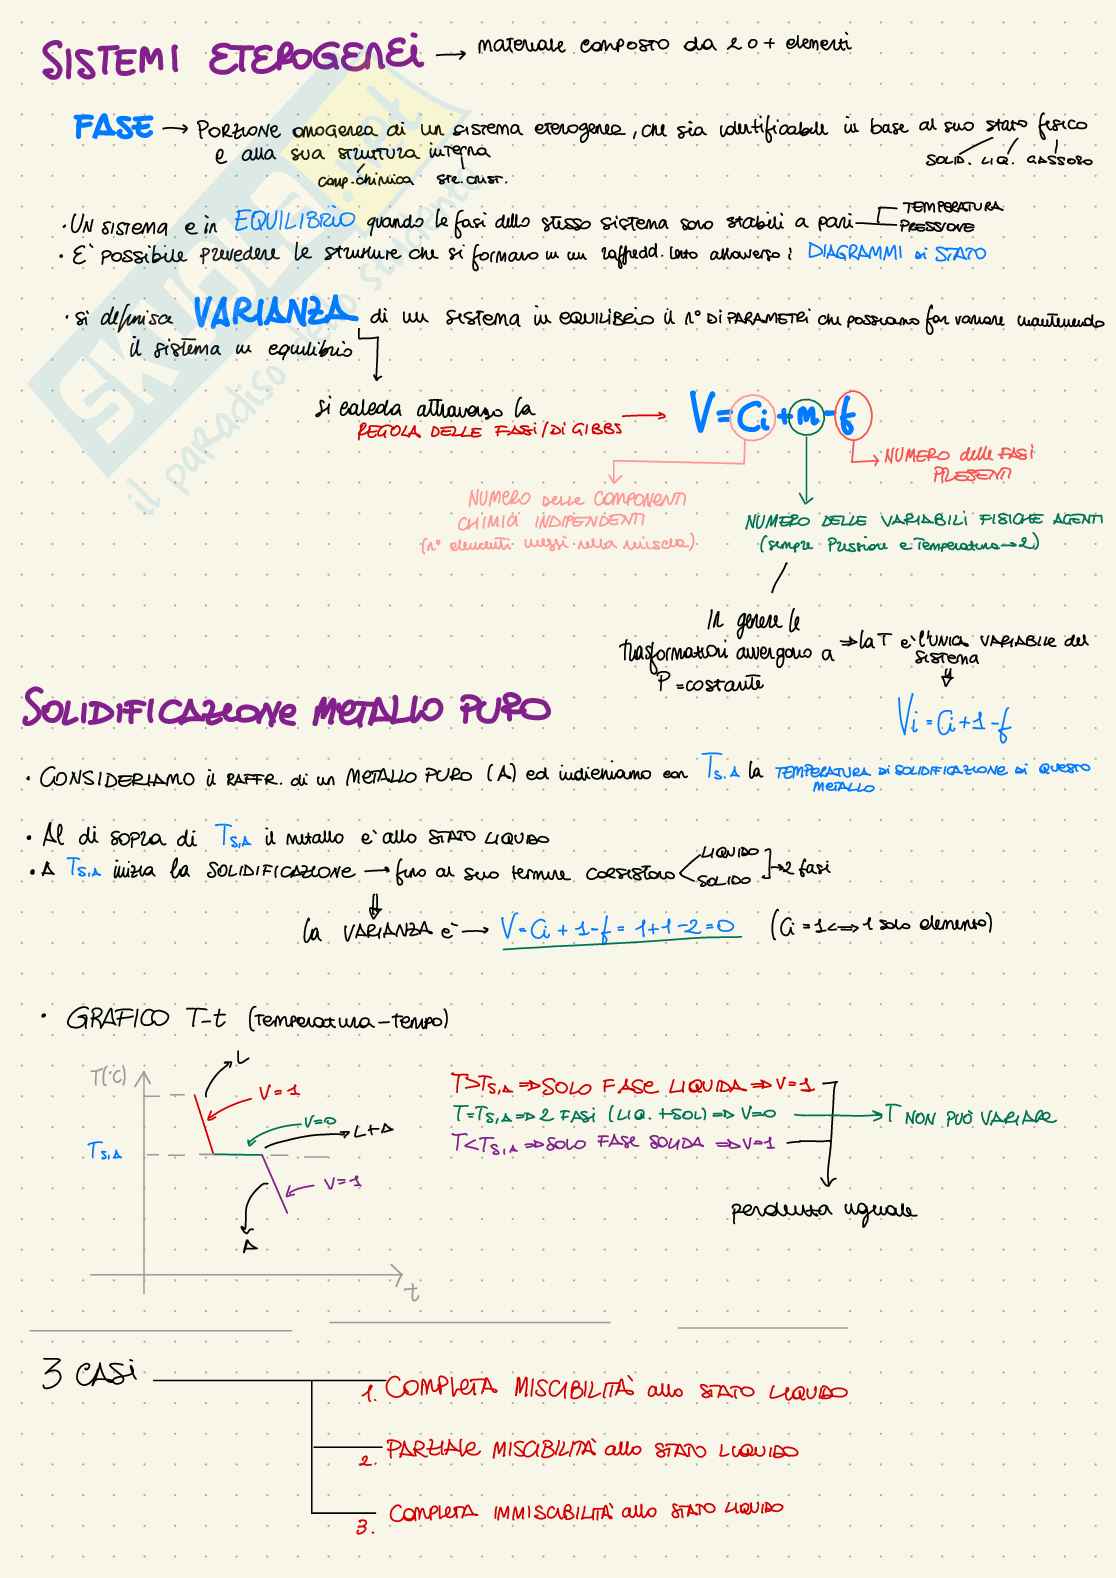 SISTEMI ETEROGENEI → materiale composto da 2 o + elementi
FASE → PORZIONE omogenea di un sistema eterogeneo, che sia identificabile in base al suo stato fisico
e alla sua struttura interna
SOLID. LIQ. GASSOSO
comp. chimica str. crist.
· UN sistema e in EQUILIBRIO quando le fasi dello stesso sistema sono stabili a pari
TEMPERATURA
PRESSIONE
· E' possibile prevedere le strutture che si formano in un raffredd. lento attraverso i DIAGRAMMI di STATO
· si definisce VARIANZA di un sistema in EQUILIBRIO il n° DI PARAMETRI che possiamo far variare mantenendo
il sistema in equilibrio
si calcola attraverso la
REGOLA DELLE FASI/DI GIBBS → V=Ci+m-f
NUMERO delle FASI
PRESENTI
NUMERO delle COMPONENTI
CHIMICI INDIPENDENTI
(n° elementi messi nella miscela)
NUMERO DELLE VARIABILI FISICHE AGENTI
(sempre Pressione e Temperatura → 2)
In genere le
trasformazioni avvengono a
P = costante
⇒ la T e' l'UNICA VARIABILE del
sistema
Vi = Ci+1-f
SOLIDIFICAZIONE METALLO PURO
· CONSIDERIAMO il RAFFR. di un METALLO PURO (A) ed indichiamo con Ts,A la TEMPERATURA DI SOLIDIFICAZIONE DI QUESTO
METALLO
· Al di sopra di Ts,A il metallo e' allo STATO LIQUIDO
· A Ts,A inizia la SOLIDIFICAZIONE → fino al suo termine coesistono
LIQUIDO
SOLIDO
→ 2 fasi
la VARIANZA e' → V=Ci + 1-f = 1+1-2=0 (Ci = 1 <=> 1 solo elemento)
· GRAFICO T-t (Temperatura-Tempo)
T(°C)
L
V=1
V=0
L+A
Ts,A
V=1
A
t
T>Ts,A ⇒ SOLO FASE LIQUIDA ⇒ V=1
T=Ts,A ⇒ 2 FASI (LIQ.+SOL) ⇒ V=0 → T NON PUÒ VARIARE
T<Ts,A ⇒ SOLO FASE SOLIDA ⇒ V=1
pendenza uguale
3 CASI
1. COMPLETA MISCIBILITÀ allo STATO LIQUIDO
2. PARZIALE MISCIBILITÀ allo STATO LIQUIDO
3. COMPLETA IMMISCIBILITÀ allo STATO LIQUIDO
SKUOLA.net
il paradiso dello studente